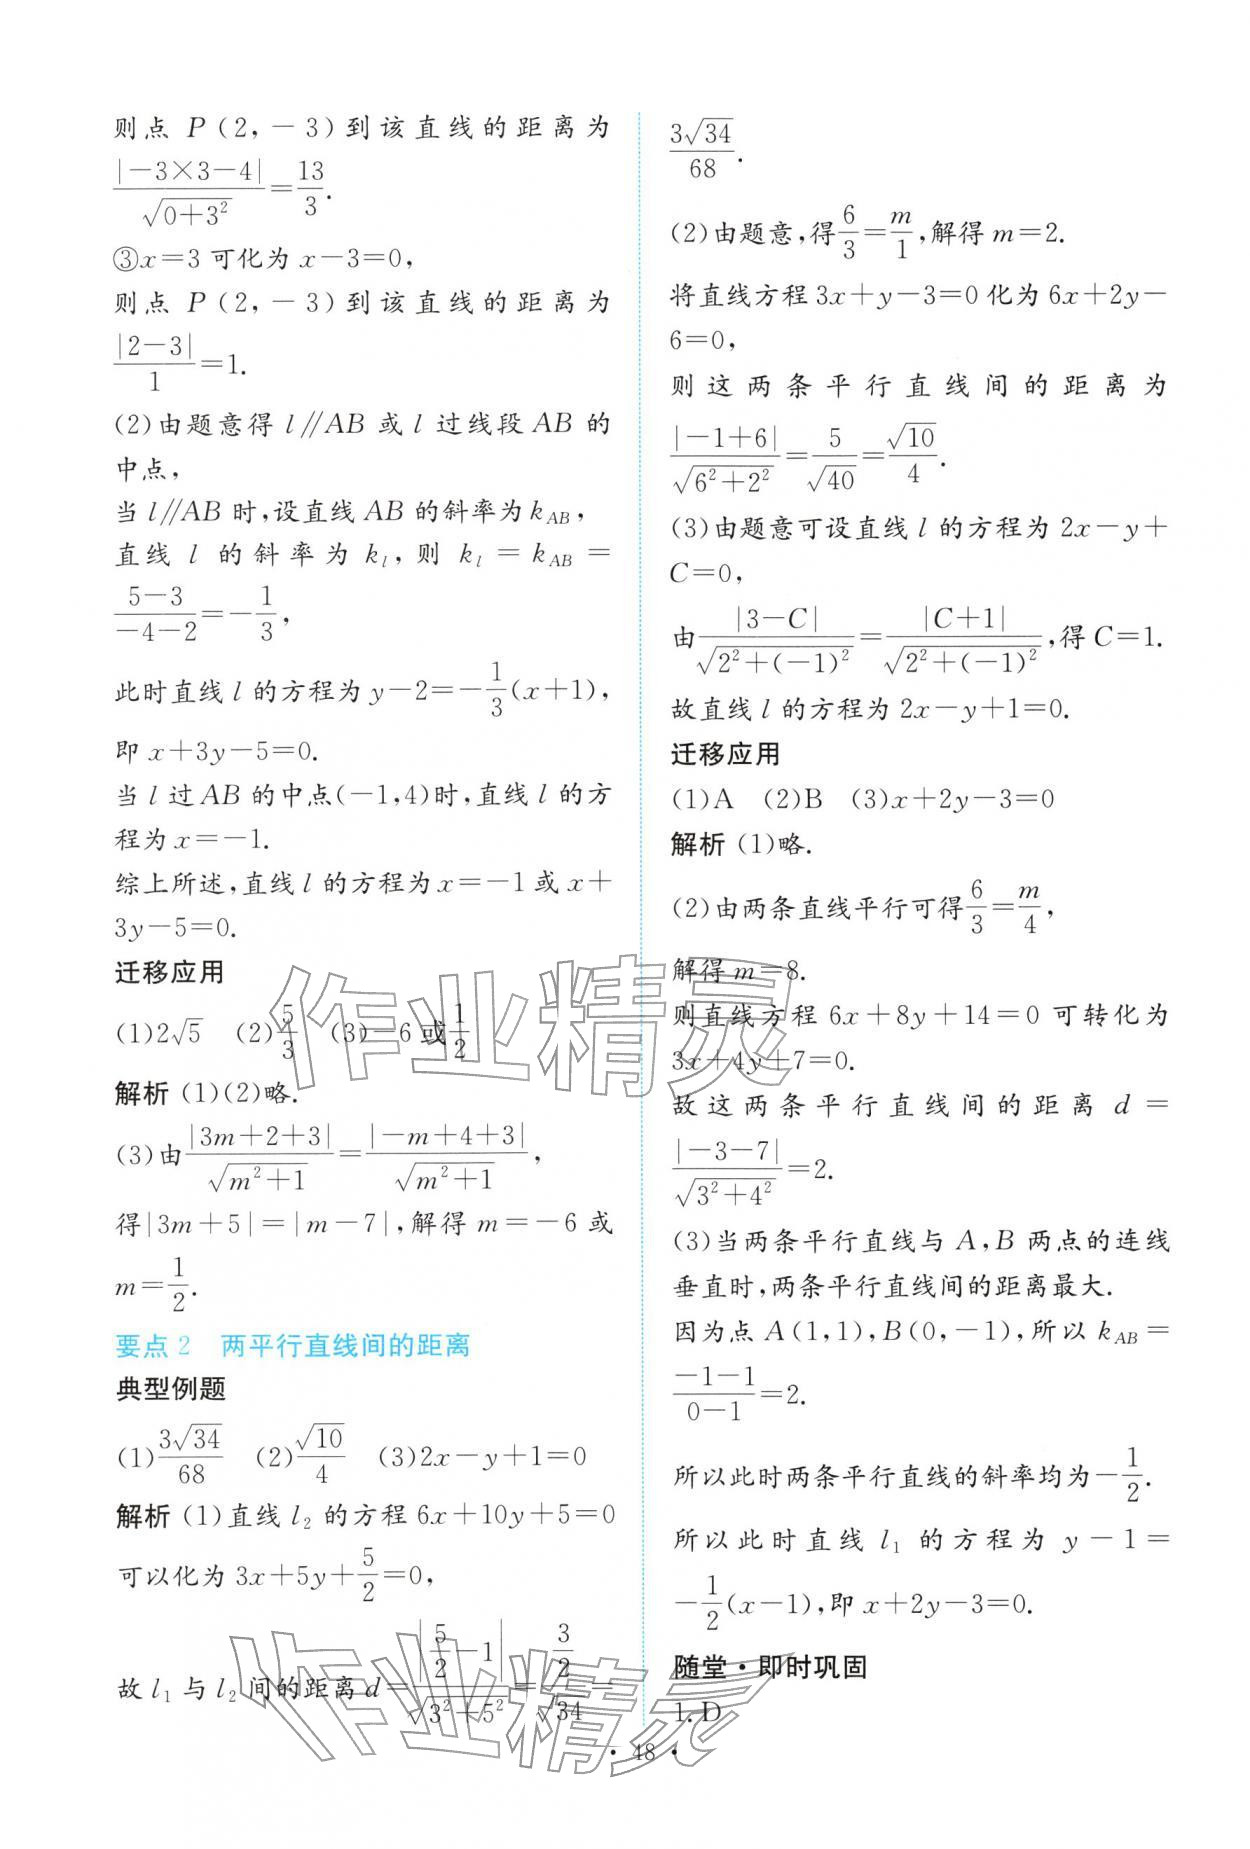 则点 P(2,-3)到该直线的距离为
|-3×3-4|/√(0+3²)=13/3.
③x=3 可化为 x-3=0,
则点 P(2,-3)到该直线的距离为
|2-3|/1=1.
(2)由题意得 l∥AB 或 l 过线段 AB 的
中点,
当 l∥AB 时,设直线 AB 的斜率为 k_AB,
直线 l 的斜率为 k_l,则 k_l=k_AB=
(5-3)/(-4-2)=-1/3,
此时直线 l 的方程为 y-2=-1/3(x+1),
即 x+3y-5=0.
当 l 过 AB 的中点(-1,4)时,直线 l 的方
程为 x=-1.
综上所述,直线 l 的方程为 x=-1 或 x+
3y-5=0.
迁移应用
(1)2√5 (2)5/3 (3)-6 或 1/2
解析 (1)(2)略.
(3)由|3m+2+3|/√(m²+1)=|-m+4+3|/√(m²+1),
得|3m+5|=|m-7|,解得 m=-6 或
m=1/2.
要点 2 两平行直线间的距离
典型例题
(1)3√34/68 (2)√10/4 (3)2x-y+1=0
解析 (1)直线 l₂ 的方程 6x+10y+5=0
可以化为 3x+5y+5/2=0,
故 l₁ 与 l₂ 间的距离 d=|5/2-1|/√(3²+5²)=(3/2)/√34=
3√34/68.
(2)由题意,得6/3=m/1,解得 m=2.
将直线方程 3x+y-3=0 化为 6x+2y-
6=0,
则这两条平行直线间的距离为
|-1+6|/√(6²+2²)=5/√40=√10/4.
(3)由题意可设直线 l 的方程为 2x-y+
C=0,
由|3-C|/√(2²+(-1)²)=|C+1|/√(2²+(-1)²),得 C=1.
故直线 l 的方程为 2x-y+1=0.
迁移应用
(1)A (2)B (3)x+2y-3=0
解析 (1)略.
(2)由两条直线平行可得6/3=m/4,
解得 m=8.
则直线方程 6x+8y+14=0 可转化为
3x+4y+7=0.
故这两条平行直线间的距离 d=
|-3-7|/√(3²+4²)=2.
(3)当两条平行直线与 A,B 两点的连线
垂直时,两条平行直线间的距离最大.
因为点 A(1,1),B(0,-1),所以 k_AB=
(-1-1)/(0-1)=2.
所以此时两条平行直线的斜率均为-1/2.
所以此时直线 l₁ 的方程为 y-1=
-1/2(x-1),即 x+2y-3=0.
随堂·即时巩固
1.D
·48·
作业精灵
作业精灵